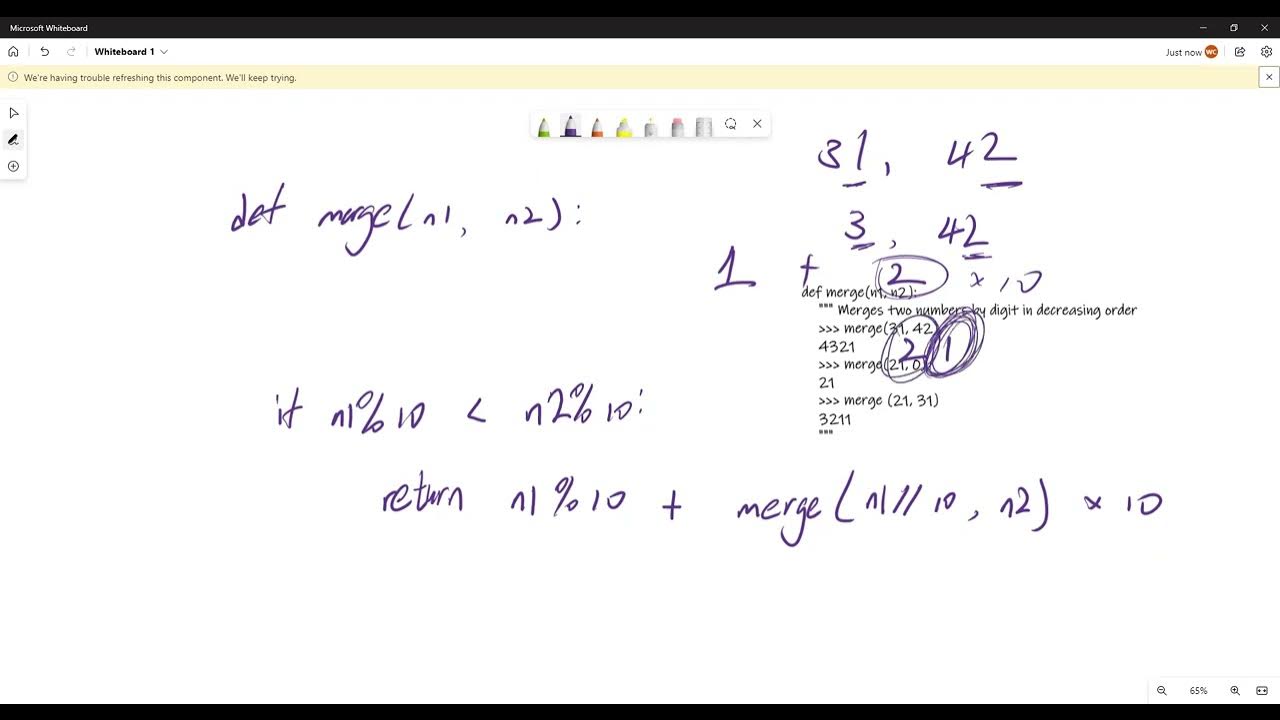 Microsoft Whiteboard
Whiteboard 1
Just now WC
We're having trouble refreshing this component. We'll keep trying.
31, 42
def merge(n1, n2):
3, 42
1 + 2 x 10
def merge(n1, n2):
""" Merges two numbers by digit in decreasing order
>>> merge(31, 42)
4321
2 1
>>> merge(21, 0)
21
>>> merge (21, 31)
3211
"""
if n1%10 < n2%10:
return n1%10 + merge(n1//10, n2) x 10
65%